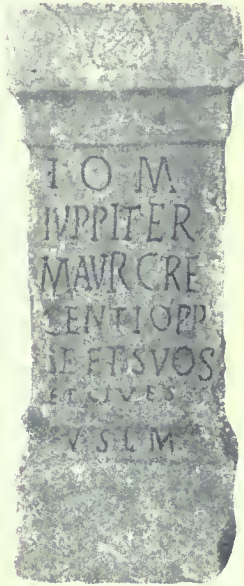 I O M
IVPPITER
MAVR CRE
CENTIO PP
SE ET SVOS
ET CIVES
V S L M